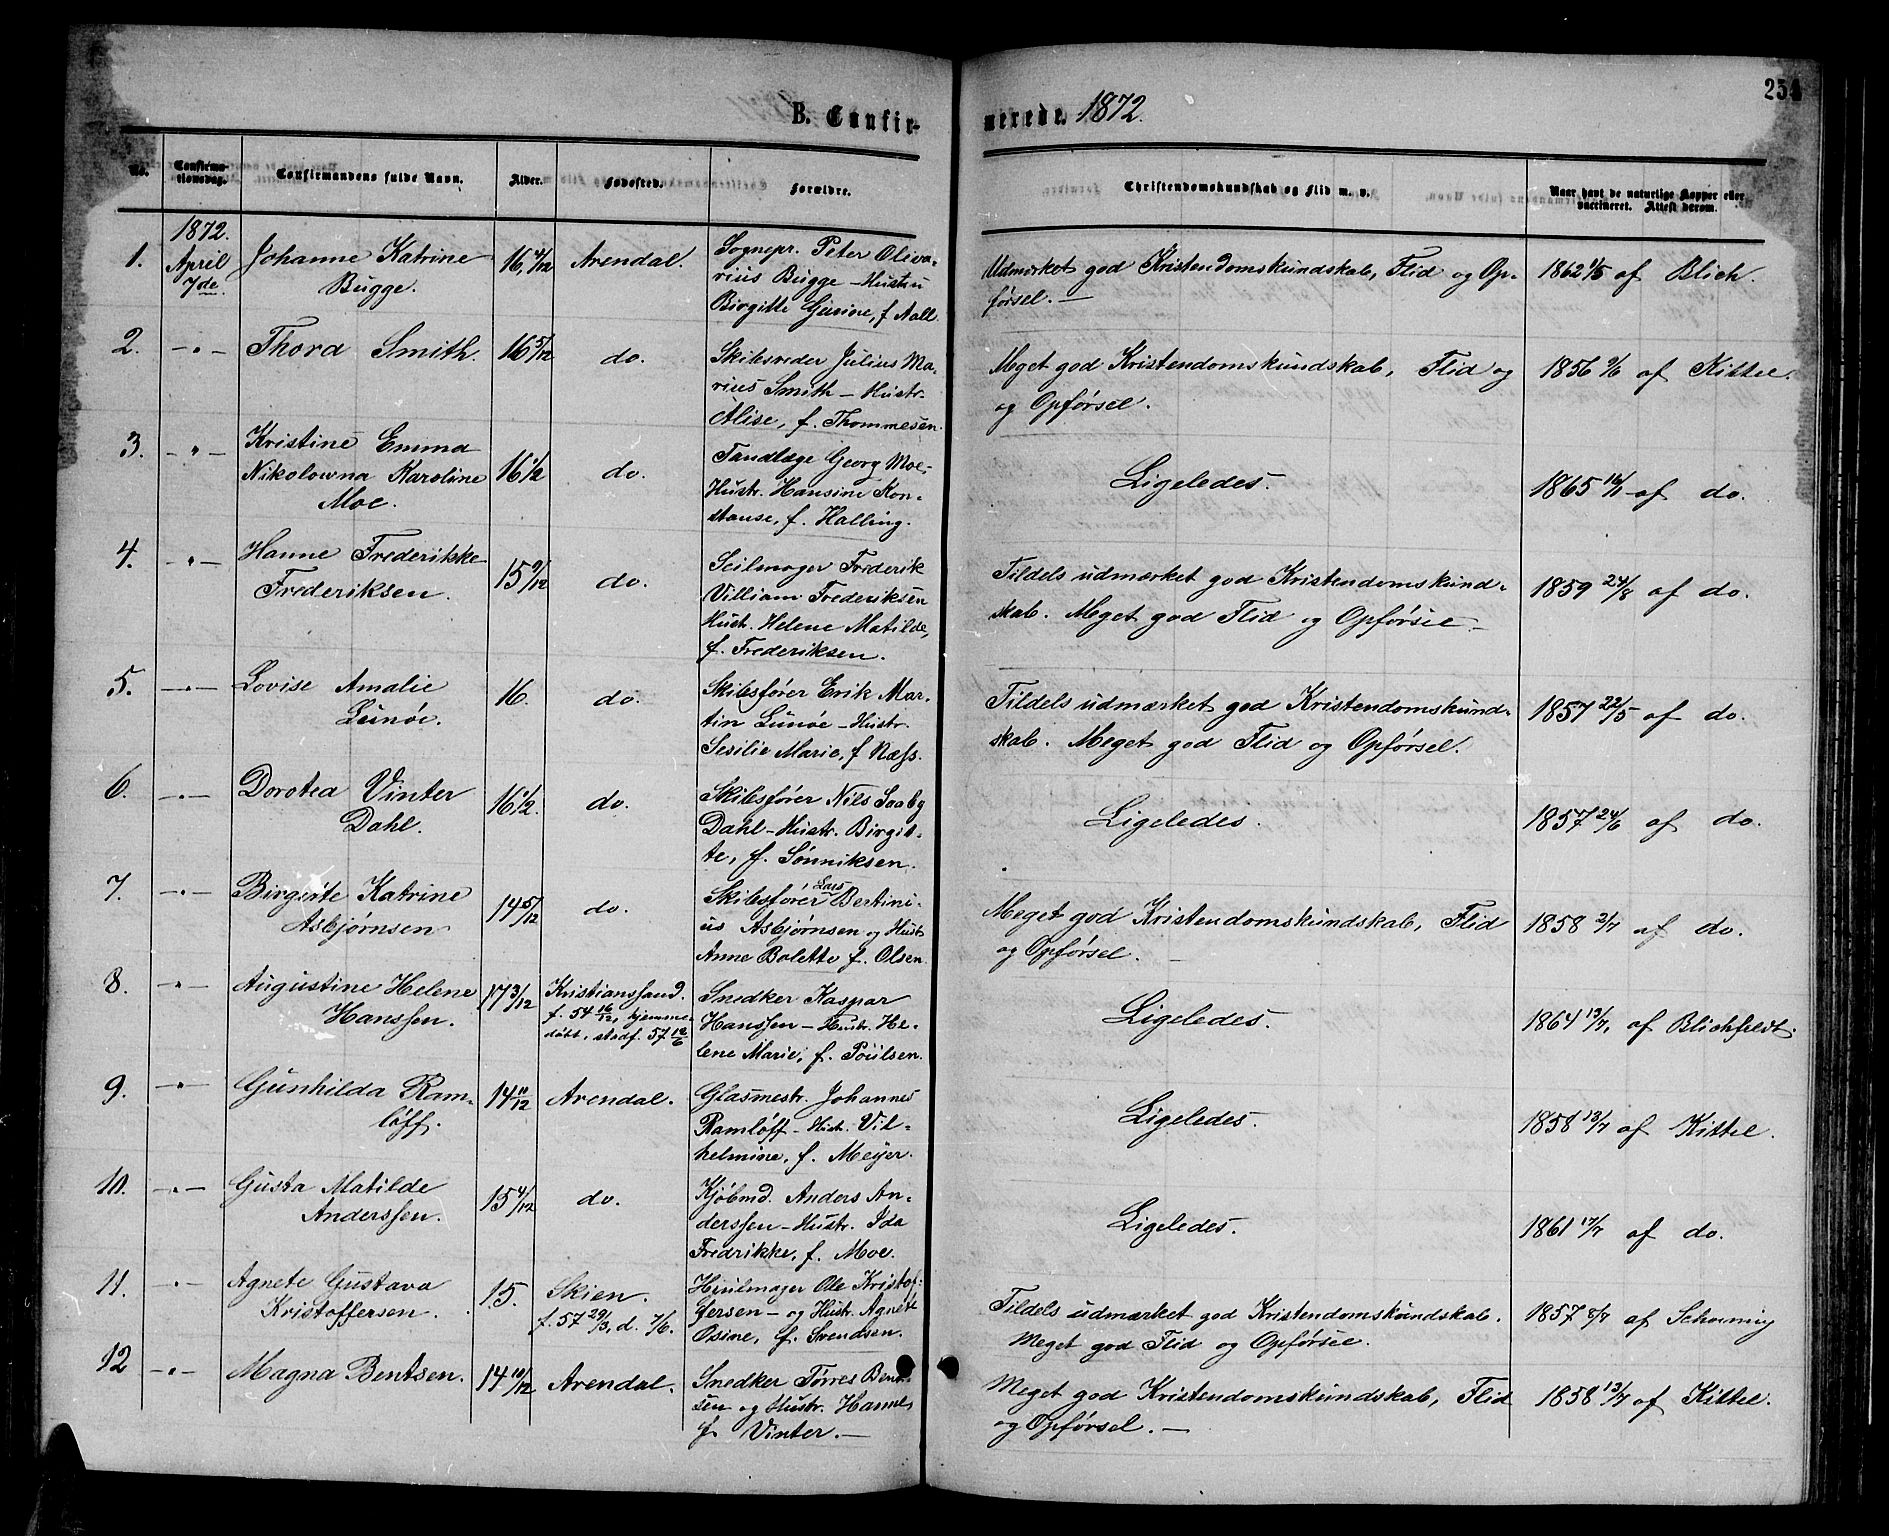 254
B. Confirmerede. 1872.
No. Confirmationsdag. Confirmandens fulde Navn. Alder. Fødested. Forældre. Christendomskundskab og Flid m. v. Naar havt de naturlige Kopper eller vaccineret. Attest derom.
1872.
1. April 7de. Johanne Katrine Bugge. 16 4/12 Arendal. Sognepr. Peter Oliva-
rius Bugge – Hustru
Birgitte Gurine, f. Aall.
Udmerket god Kristendomskundskab, Flid og Op-
førsel. — 1862 1/5 af Blich.
2. —„— Thora Smith. 16 5/12 do. Skibsreder Julius Ma-
rius Smith – Hustr.
Alise, f. Thommesen.
Meget god Kristendomskundskab, Flid og
og Opførsel. 1856 9/6 af Kittel.
3. —„— Kristine Emma
Nikolowna Karoline
Moe. 16 1/2 do. Tandlæge Georg Moe –
Hustr. Hansine Kon-
stanse, f. Halling.
Ligeledes. 1865 16/1 af do.
4. —„— Hanne Frederikke
Frederiksen. 15 9/12 do. Seilmager Frederik
Villiam Frederiksen
Hust. Helene Matilde,
f. Frederiksen.
Tildels udmærket god Kristendomskund-
skab. Meget god Flid og Opførsel. 1859 24/8 af do.
5. —„— Lovise Amalie
Lunøe. 16. do. Skibsfører Erik Mar-
tin Lunøe – Hustr.
Sesilie Marie, f. Næss.
Tildels udmærket god Kristendomskund-
skab. Meget god Flid og Opførsel. 1857 22/5 af do.
6. —„— Dorotea Vinter
Dahl. 16 1/2. do. Skibsfører Nils Saaby
Dahl – Hustr. Birgit-
te, f. Sønniksen.
Ligeledes. 1857 24/6 af do.
7. —„— Birgitte Katrine
Asbjørnsen 14 5/12 do. Skibsfører Lars Bertini-
us Asbjørnsen og Hust.
Anne Bolette f. Olsen.
Meget god Kristendomskundskab, Flid
og Opførsel. — 1858 2/7 af do.
8. —„— Augustine Helene
Hanssen. 17 3/12 Kristianssand.
f. 54 16/12, hjemme-
døbt, stadf. 57 12/6 Snedker Kaspar
Hanssen – Hustr. He-
lene Marie, f. Poulsen.
Ligeledes. 1864 13/7, af Blichfeldt.
9. —„— Gunhilda Ram-
løff. 14 11/12 Arendal. Glasmestr. Johannes
Ramløff – Hustr. Vil-
helmine, f. Meyer.
Ligeledes. 1858 13/7 af Kittel.
10. —„— Gusta Matilde
Anderssen. 15 4/12 do. Kjøbmd. Anders An-
derssen – Hustr. Ida
Fredrikke, f. Moe.
Ligeledes. 1861 17/7 af do.
11. —„— Agnete Gustava
Kristoffersen. 15. Skien.
f. 57 29/3, d. 7/6. Hjulmager Ole Kristof-
fersen – og Hustr. Agnete
Osine, f. Svendsen.
Tildels udmærket god Kristendomskundskab.
Meget god Flid og Opførsel. 1857 8/7 af
12 —„— Magna Bentsen. 14 10/12 Arendal. Snedker Tørres Bent-
sen og Hustr. Hanne,
f. Vinter. —
Meget god Kristendomskundskab, Flid
og Opførsel. — 1858 13/7 af Kittel.